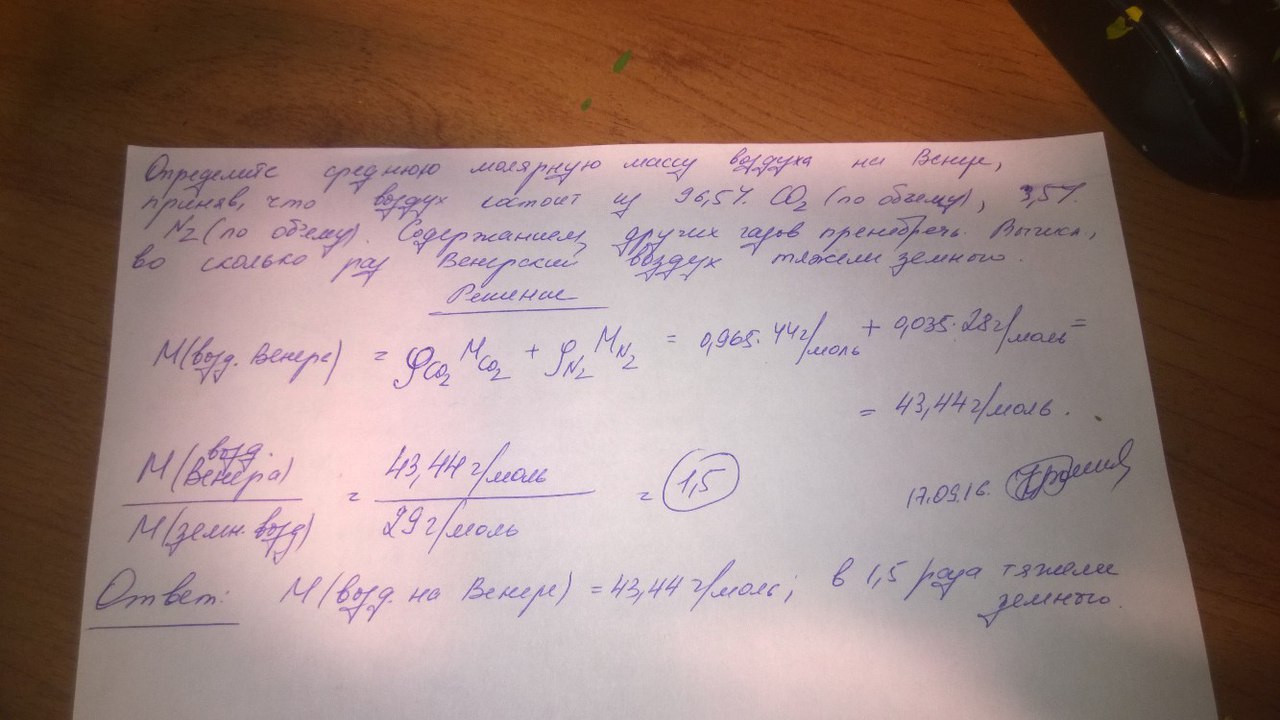 Определите среднюю молярную массу воздуха на Венере,
приняв, что воздух состоит из 96,5% CO2 (по объему), 3,5%
N2 (по объему). Содержанием других газов пренебречь. Вычисл,
во сколько раз Венерский воздух тяжели земного.
Решение
M(возд. Венере) = φCO2 MCO2 + φN2 MN2 = 0,965·44г/моль + 0,035·28г/моль =
= 43,44г/моль.
M(возд. Венера) / M(земн. возд) = 43,44г/моль / 29г/моль = 1,5
17.09.16.
Ответ: M(возд. на Венере) = 43,44г/моль; в 1,5 раза тяжели
земного.